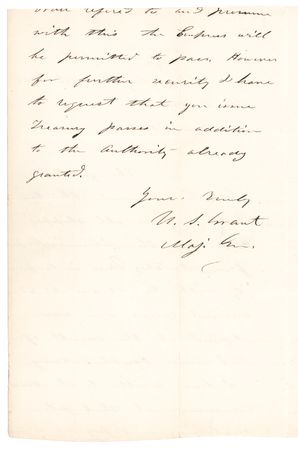 refered to and presume
with this the Empress will
be permitted to pass. However
for further security I have
to request that you issue
Treasury passes in addition
to the Authority already
granted.
Yours Truly
U. S. Grant
Maj. Gen.